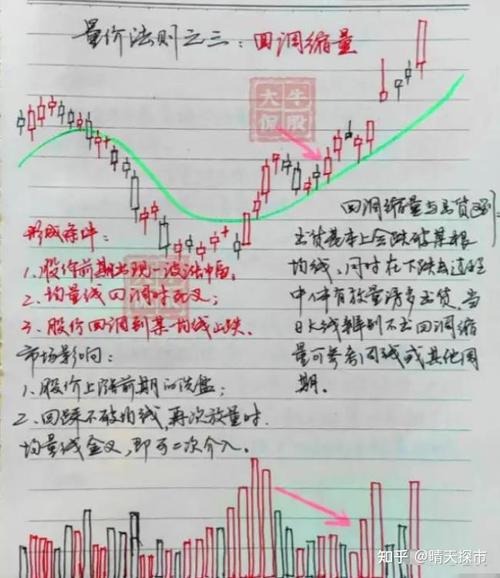 量价法则之三：回调缩量
大牛
保股
形成条件：
1、股价前期出现一波涨幅。
2、均量线回调时死叉；
3、股价回调到某一均线止跌。
市场影响：
1、股价上涨前期的洗盘；
2、回踩不破均线，再次放量时
均量线金叉，即可二次介入。
回调缩量与出货区别
出货基本上会跌破某根
均线，同时在下跌去过程
中伴有放量诱多出货，当
日K线辨别不出回调缩
量可参考周线或其他周
期。
知乎 @晴天探市